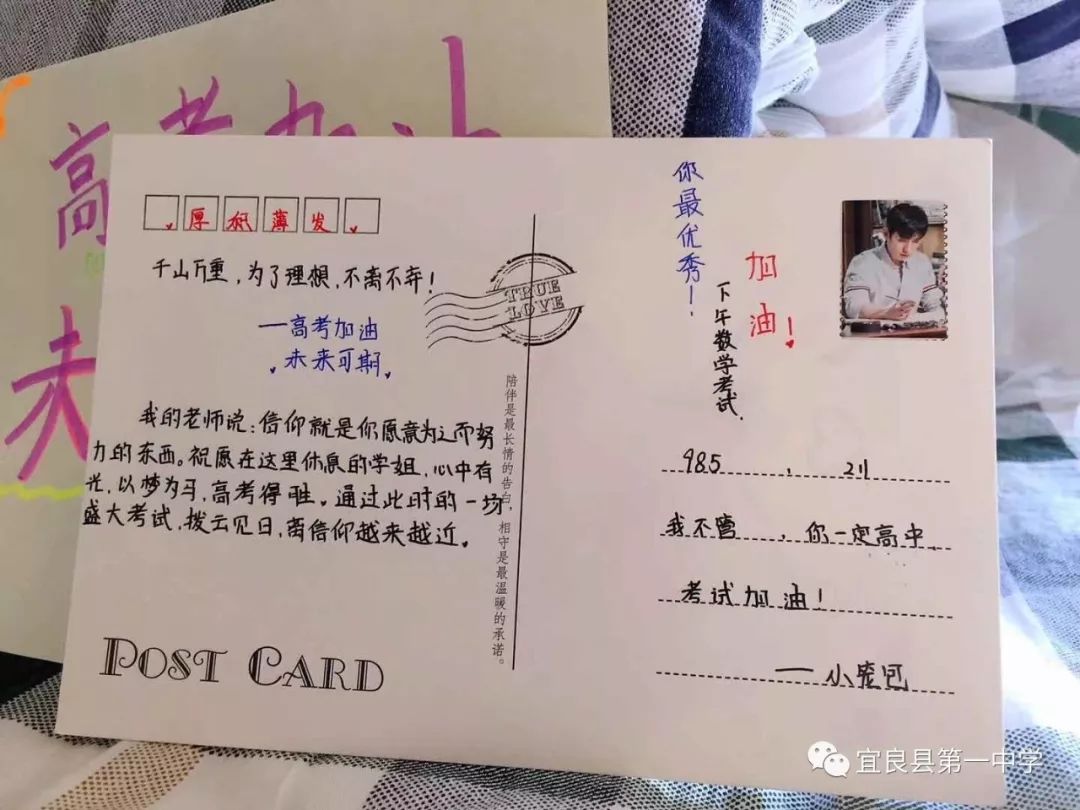 高考加油
未
厚积薄发
千山万重,为了理想,不离不弃!
—高考加油
未来可期
我的老师说:信仰就是你愿意为之而努
力的东西。祝愿在这里休息的学姐,心中有
光,以梦为马,高考得胜。通过此时的一场
盛大考试,拨云见日,离信仰越来越近。
POST CARD
TRUE
LOVE
陪伴是最长情的告白,相守是最温暖的承诺。
你最优秀!
下午数学考试.
加油!
985 , 211
我不管 , 你一定高中
考试加油!
—— 小宠包
宜良县第一中学